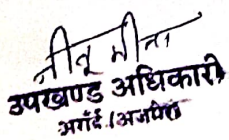 नीतू मीना
उपखण्ड अधिकारी
अराई (अजमेर)